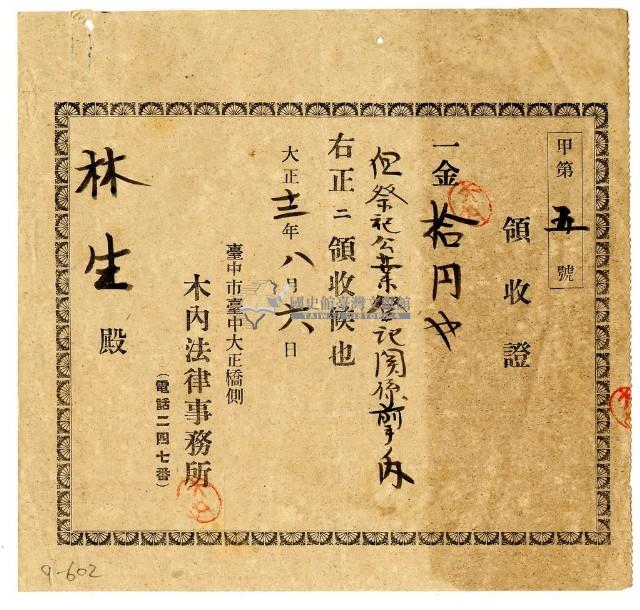 甲第五號
領收證
一金拾円也
但祭祀公業登記関係
右正ニ領收候也
大正十三年八月六日
臺中市臺中大正橋側
木內法律事務所
(電話二四七番)
林生殿
國史館臺灣文獻館
TAIWAN HISTORICA
9-602